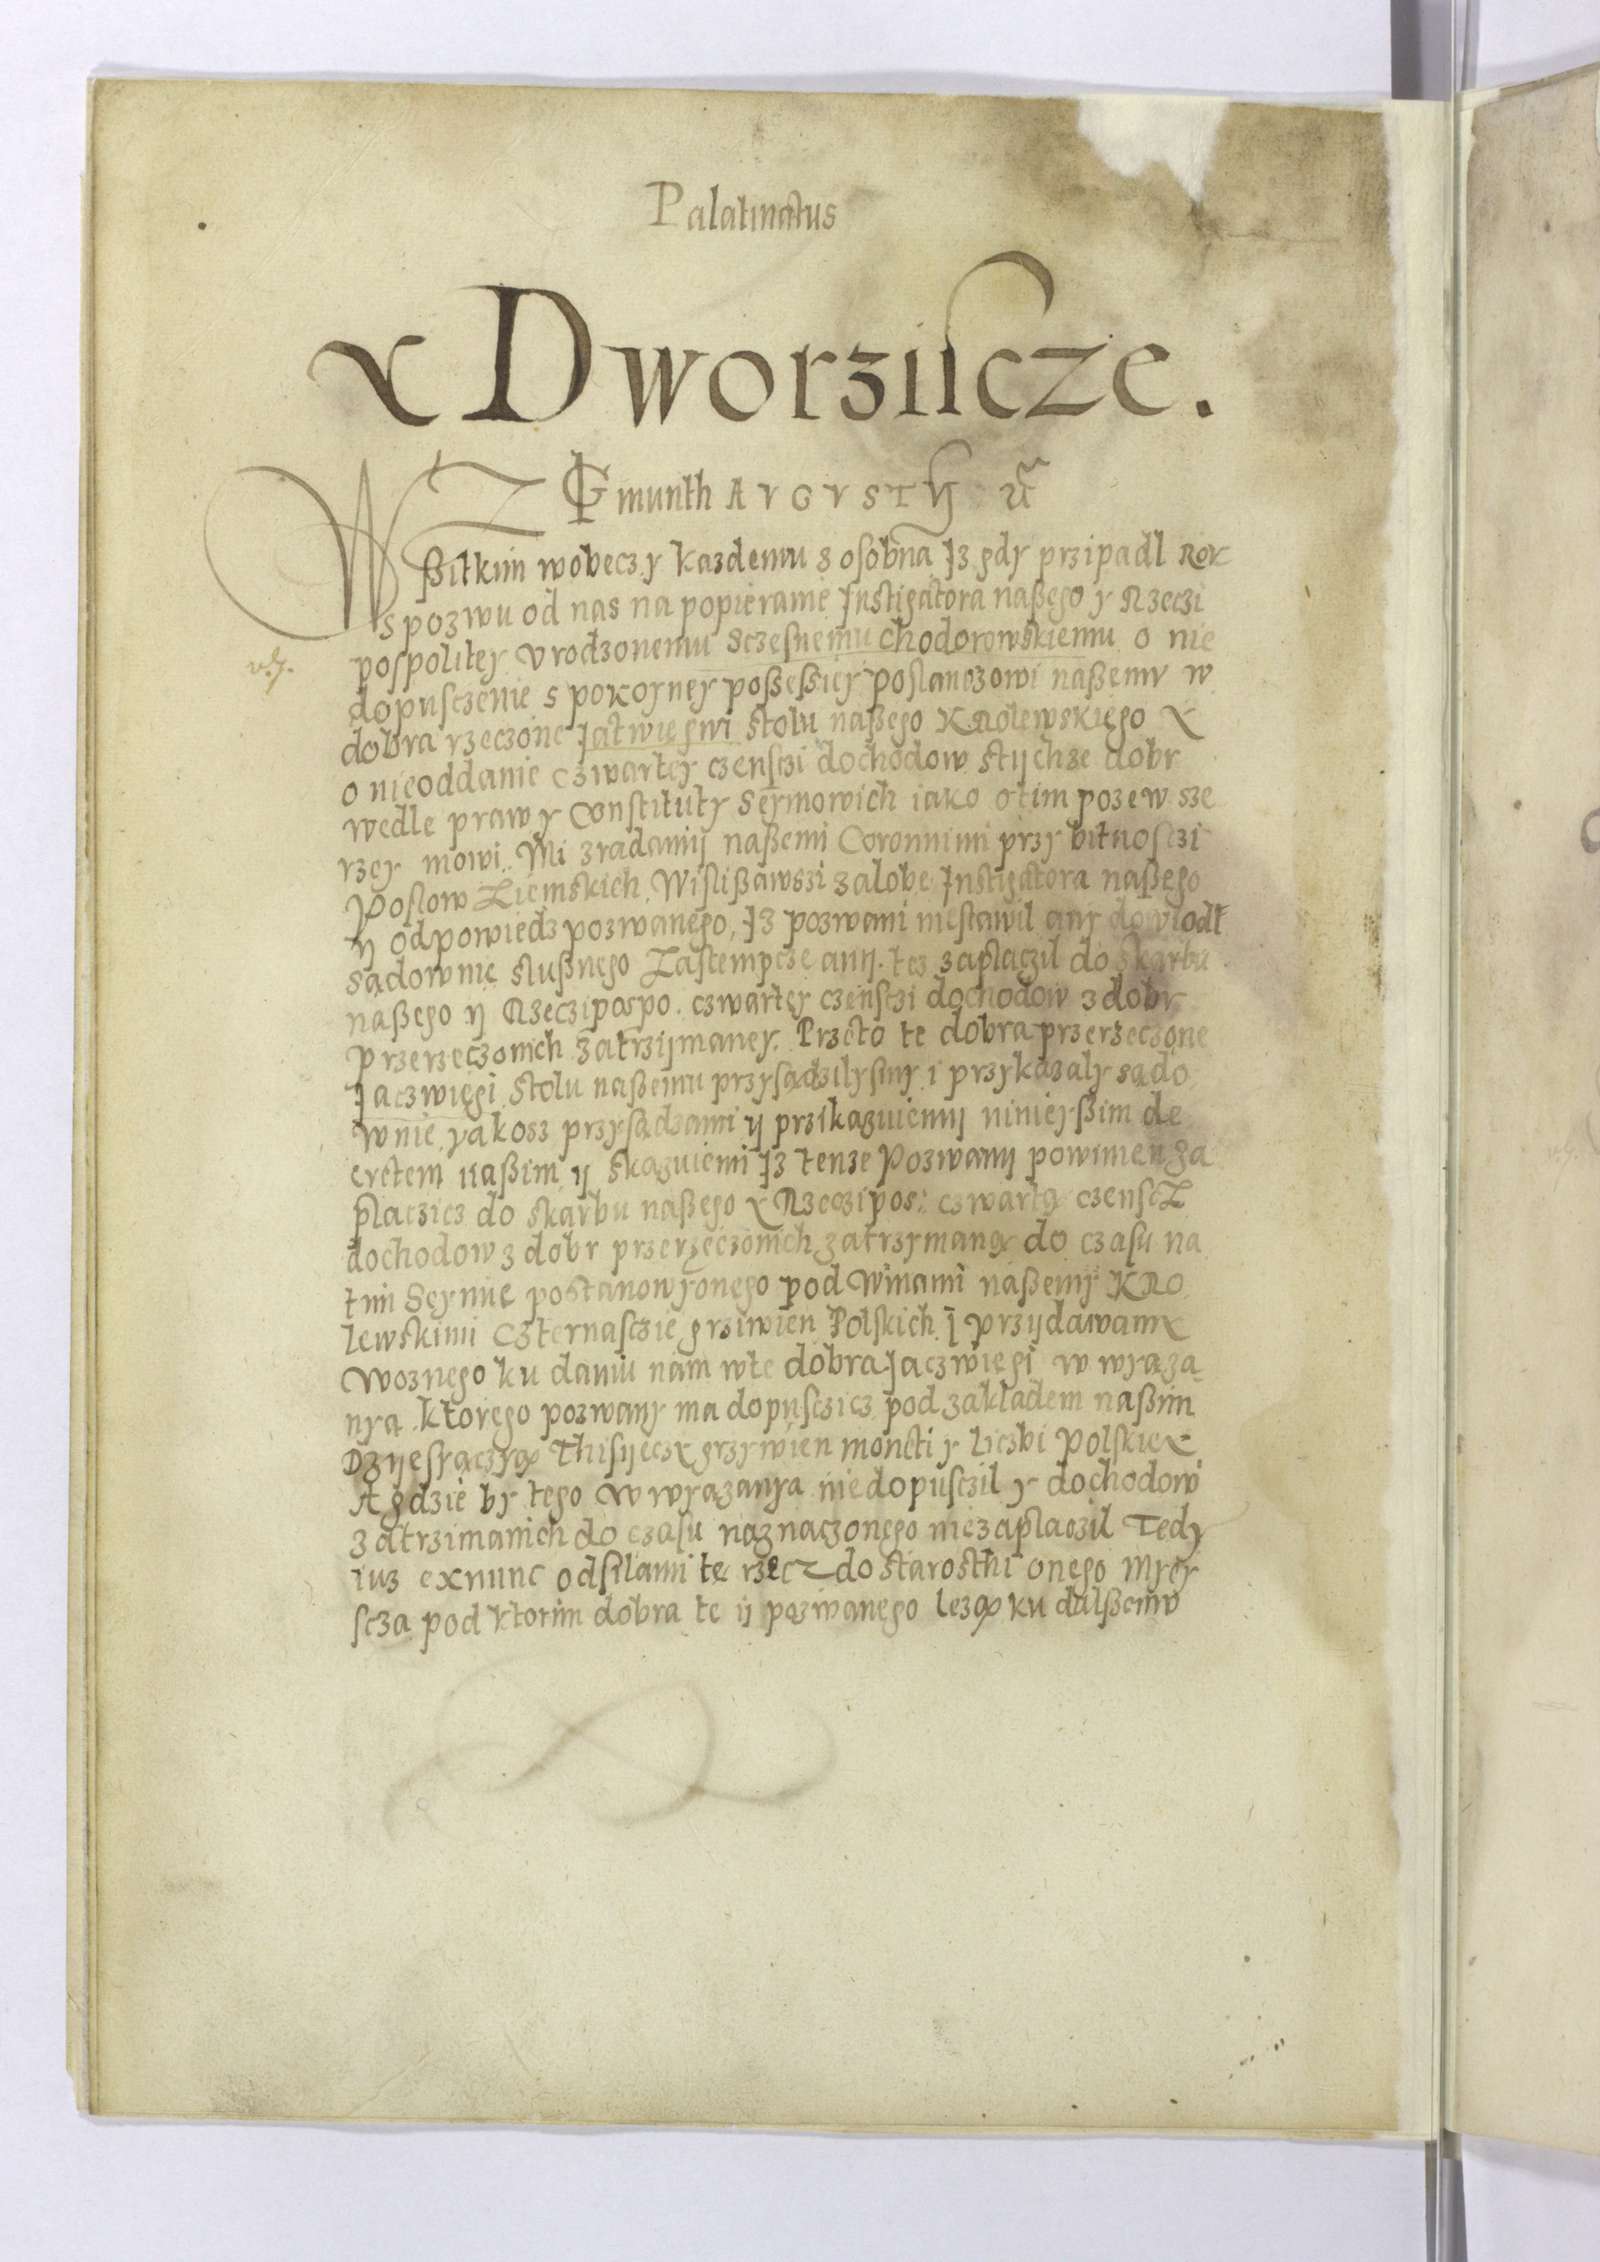 Palatinatus
y Dworziscze.
ZIGmunth AVGVSTH
Wszitkim wobecz y kazdemu z osobna Jz gdy przipadl Rok
s pozwu od nas na popieranie Instigatora naßego y Rzeczi
pospolitey Vrodzonemu Sczęsnemu Chodorowskiemu o nie
dopusczenie s pokoyney poßeßiey Poslanczowi naßemu w
dobra rzeczone Jatwięgwi stolu naßego Krolewskiego Y
o nieoddanie Czwartey czensczi dochodow stychze dobr
wedle praw y Constituty Seymowich iako o tim pozew sze
rzey mowi. Mi z radamy naßemi Coronnimi przy bitnosczi
Poslow Ziemskich, Wislißawszi zalobę Instigatora naßego
y odpowiedz pozwanego, Iz pozwani niestawil any dowiodl
sądownie slußnego Zastempcze any. tez zaplaczil do skarbu
naßego y Rzeczipospo. czwartey czensczi dochodow z dobr
przerzeczonich zatrzymaney. Przeto te dobra przerzeczone
Jaczwięgi stolu naßemu przysądzilysmy i przykazaly sądo
wnie yakosz przysądzami y przikazuiemy ninieyßim de
cretem naßim y skazuiemi Iz tenze Pozwany powinien za
placzicz do skarbu naßego Y Rzeczipos: czwartą czenscz
dochodow z dobr przerzeczonich zatrzymaną do czasu na
tim Seymie postanowyonego pod winami naßemy Kro
lewskimi Czternasczie grziwien Polskich I przydawamy
Woznego ku daniu nam wte dobra Jaczwięgi w wyąza
nya. ktorego pozwany ma dopusczicz pod zakladem naßim
Dzyesyączyą Thisyęczy grzywien monety y liczbi Polskiey
A gdzie by tego w wyązanya niedopusczil y dochodow
zatrzimanich do czasu naznaczonego niezaplaczil Tedy
iuz exnunc odsilami tę rzecz do starosthi onego Myey
scza pod ktorim dobra te y pozwanego lezą ku dalßemv